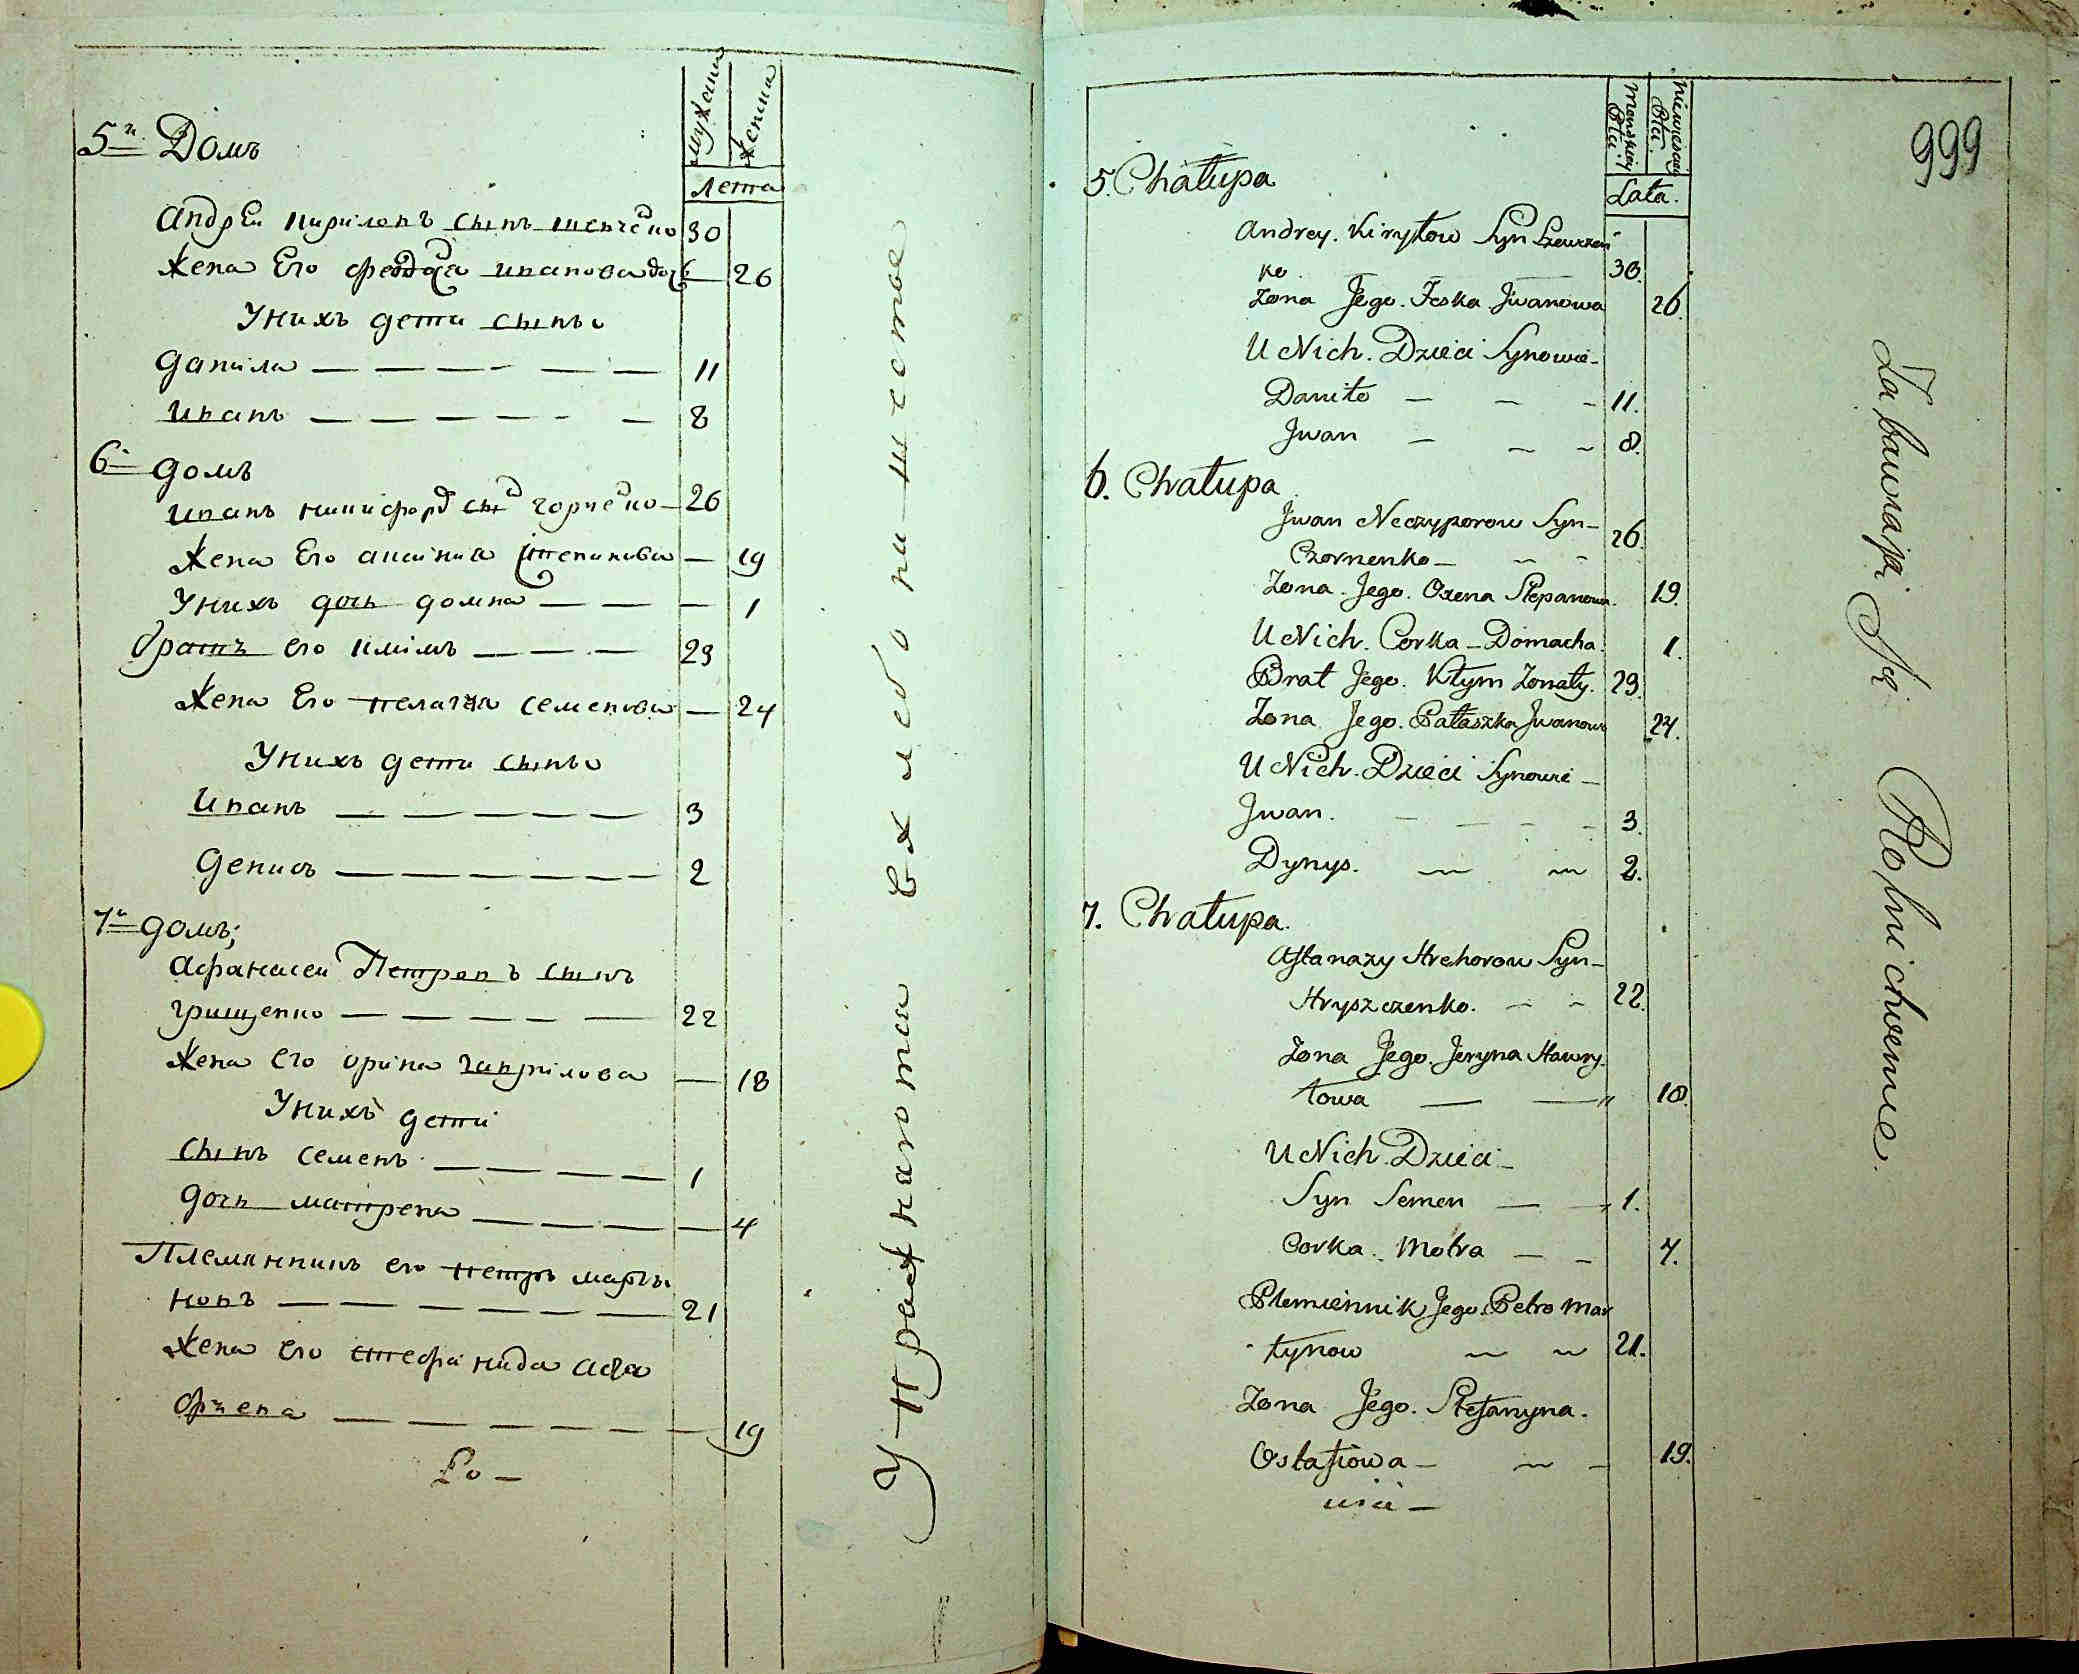 мужска
женска
Лета
5й Домъ
Андреи Кириловъ сынъ шевченко 30
Жена Его феодося иванова дочь — 26
У нихъ дети сынъи
данила — — — — — — 11
иванъ — — — — — — 8
6й домъ
иванъ никифоро сы чорненко — 26
Жена Его ксиния степанова — 19
У нихъ дочь домна — — — 1
братъ его климъ — — — 29
Жена Его пелагея семенова — 24
У нихъ дети сынъи
Иванъ — — — — — 3
денисъ — — — — — — 2
7й домъ;
Афанасеи Петровъ сынъ
грищенко — — — — — 22
Жена его орина гаврилова — 18
У нихъ дети
сынъ семенъ — — — — 1
дочь матрена — — — — — 4
Племянникъ его петръ марты
новъ — — — — — — 21
Жена его стефанида Афа
— — — — — — 19
Упражнаются в хлебопашестве
999
Męskiey Płci.
Niewiesciey Płci.
Lata.
5. Chałupa
Andrey. Kiryłow Syn Szewczen
ko 30.
Zona Jego. Feska Jwanowa 26.
U Nich. Dzieci Synowie –
Daniło — — — 11.
Jwan — — — 8.
6. Chałupa
Jwan Neczyporow Syn –
Czornenko — — — 26.
Zona. Jego. Oxena Stepanowa. 19.
U Nich. Corka – Domacha. 1.
Brat Jego. Kłym Zonaty. 29.
Zona Jego. Pałaszka Jwanowa 24.
U Nich. Dzieci Synowie —
Jwan. — — — — 3.
Dynys. — — 2.
7. Chałupa.
Affanazy Hrehorow Syn –
Hryszczenko. — — 22.
Zona Jego. Jeryna Hawry.
łowa — — " 18.
U Nich. Dzieci –
Syn Semen — — 1.
Corka. Motra — — 4.
Plemiennik Jego. Petro Mar
tynow — — 21.
Zona Jego. Stefanyna.
Ostafiowa — — — 19.
Zabawiaią Się Rolnichwenie.